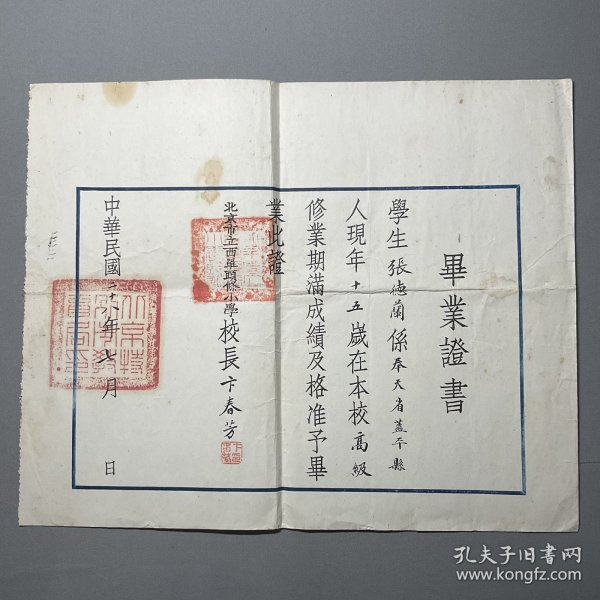 畢業證書
學生張德蘭係奉天省蓋平縣
人現年十五歲在本校高級
修業期滿成績及格准予畢
業此證
北京市立西單頭條小學校長卞春芳
中華民國二十八年七月 日
孔夫子旧书网
www.kongfz.com